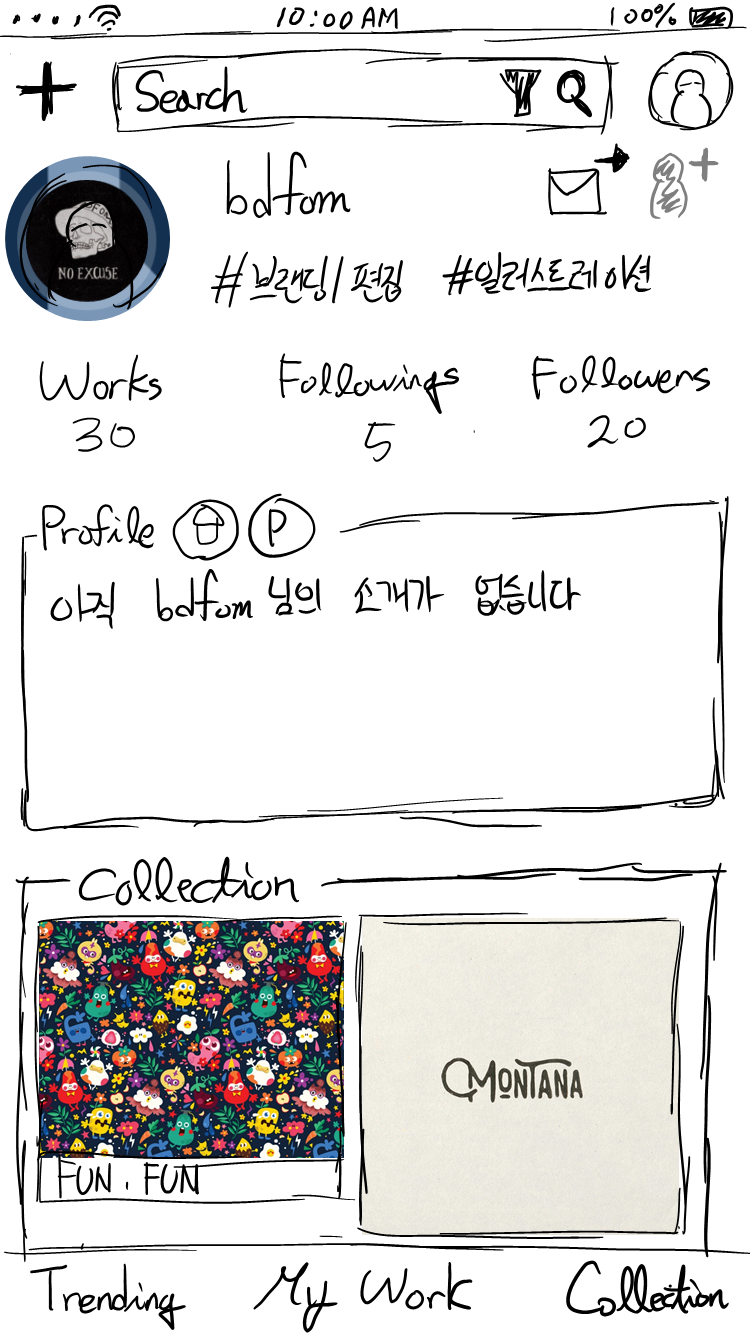 10:00 AM 100%
Search
bdfom
NO EXCUSE
#브랜딩/편집 #일러스트레이션
Works Followings Followers
30 5 20
Profile P
아직 bdfom님의 소개가 없습니다
Collection
MONTANA
FUN. FUN
Trending My Work Collection